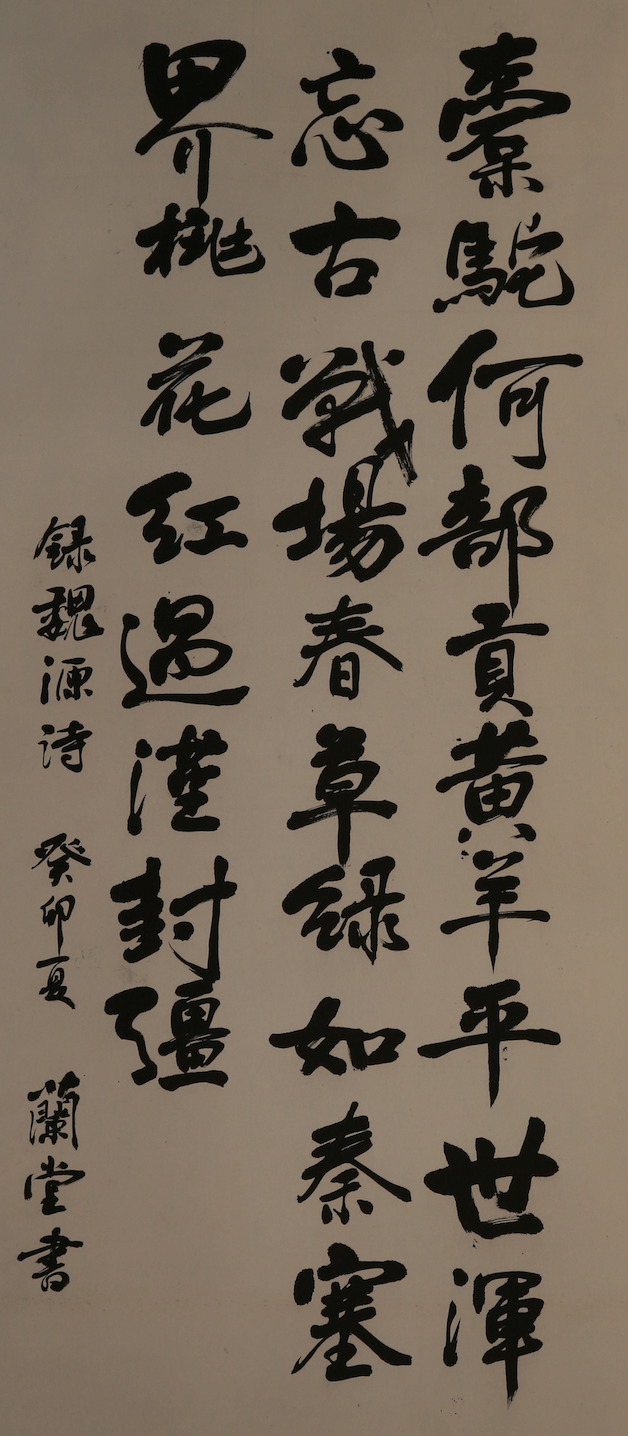 橐駝何部貢黄羊平世渾
忘古戰場春草綠如秦塞
界桃花紅過漢封疆
録魏源詩 癸卯夏 蘭堂書